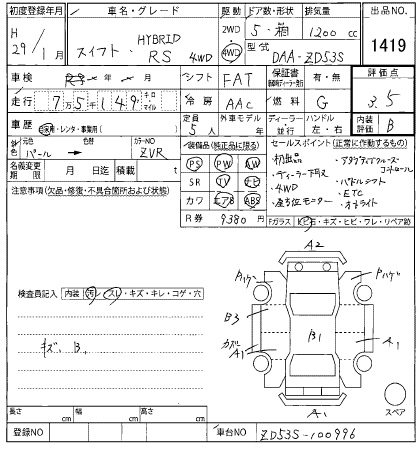 初度登録年月 車名・グレード 駆動 ドア数・形状 排気量 出品NO.
H 29/1月 スイフト HYBRID RS 4WD 2WD 4WD 5・箱 1200cc 1419
型式 DAA-ZD53S
車検 年 月 シフト FAT 保証書 有・無 評価点
走行 7万5千149 キロ マイル 冷房 AAC 燃料 G 3.5
車歴 自家用・レンタ・事業用( ) 定員 5人 外車モデル 年 ディーラー 並行 ハンドル 左・右 内装評価 B
外色 元色 パール → 色替 カラーNO ZVR 装備品(純正品に限る) セールスポイント(正常に作動するもの)
名義変更期限 月 日迄 積載 t PS PW AW ・初出品 ・アダプティブクルーズコントロール
注意事項(欠品・修復・不具合箇所および状態) SR TV ナビ ・ディーラー下取 ・パドルシフト
カワ エアB ABS ・4WD ・ETC
R券 9380円 ・オートライト
Fガラス 飛石・キズ・ヒビ・ワレ・リペア跡
A2
Pハゲ Pハゲ
検査員記入 内装 汚レ・スレ・キズ・キレ・コゲ・穴
B3
B1
キズ、B、
カズリ A1
A1
A1
スペア
長さ cm 幅 cm 高さ cm
登録NO 車台NO ZD53S-100996